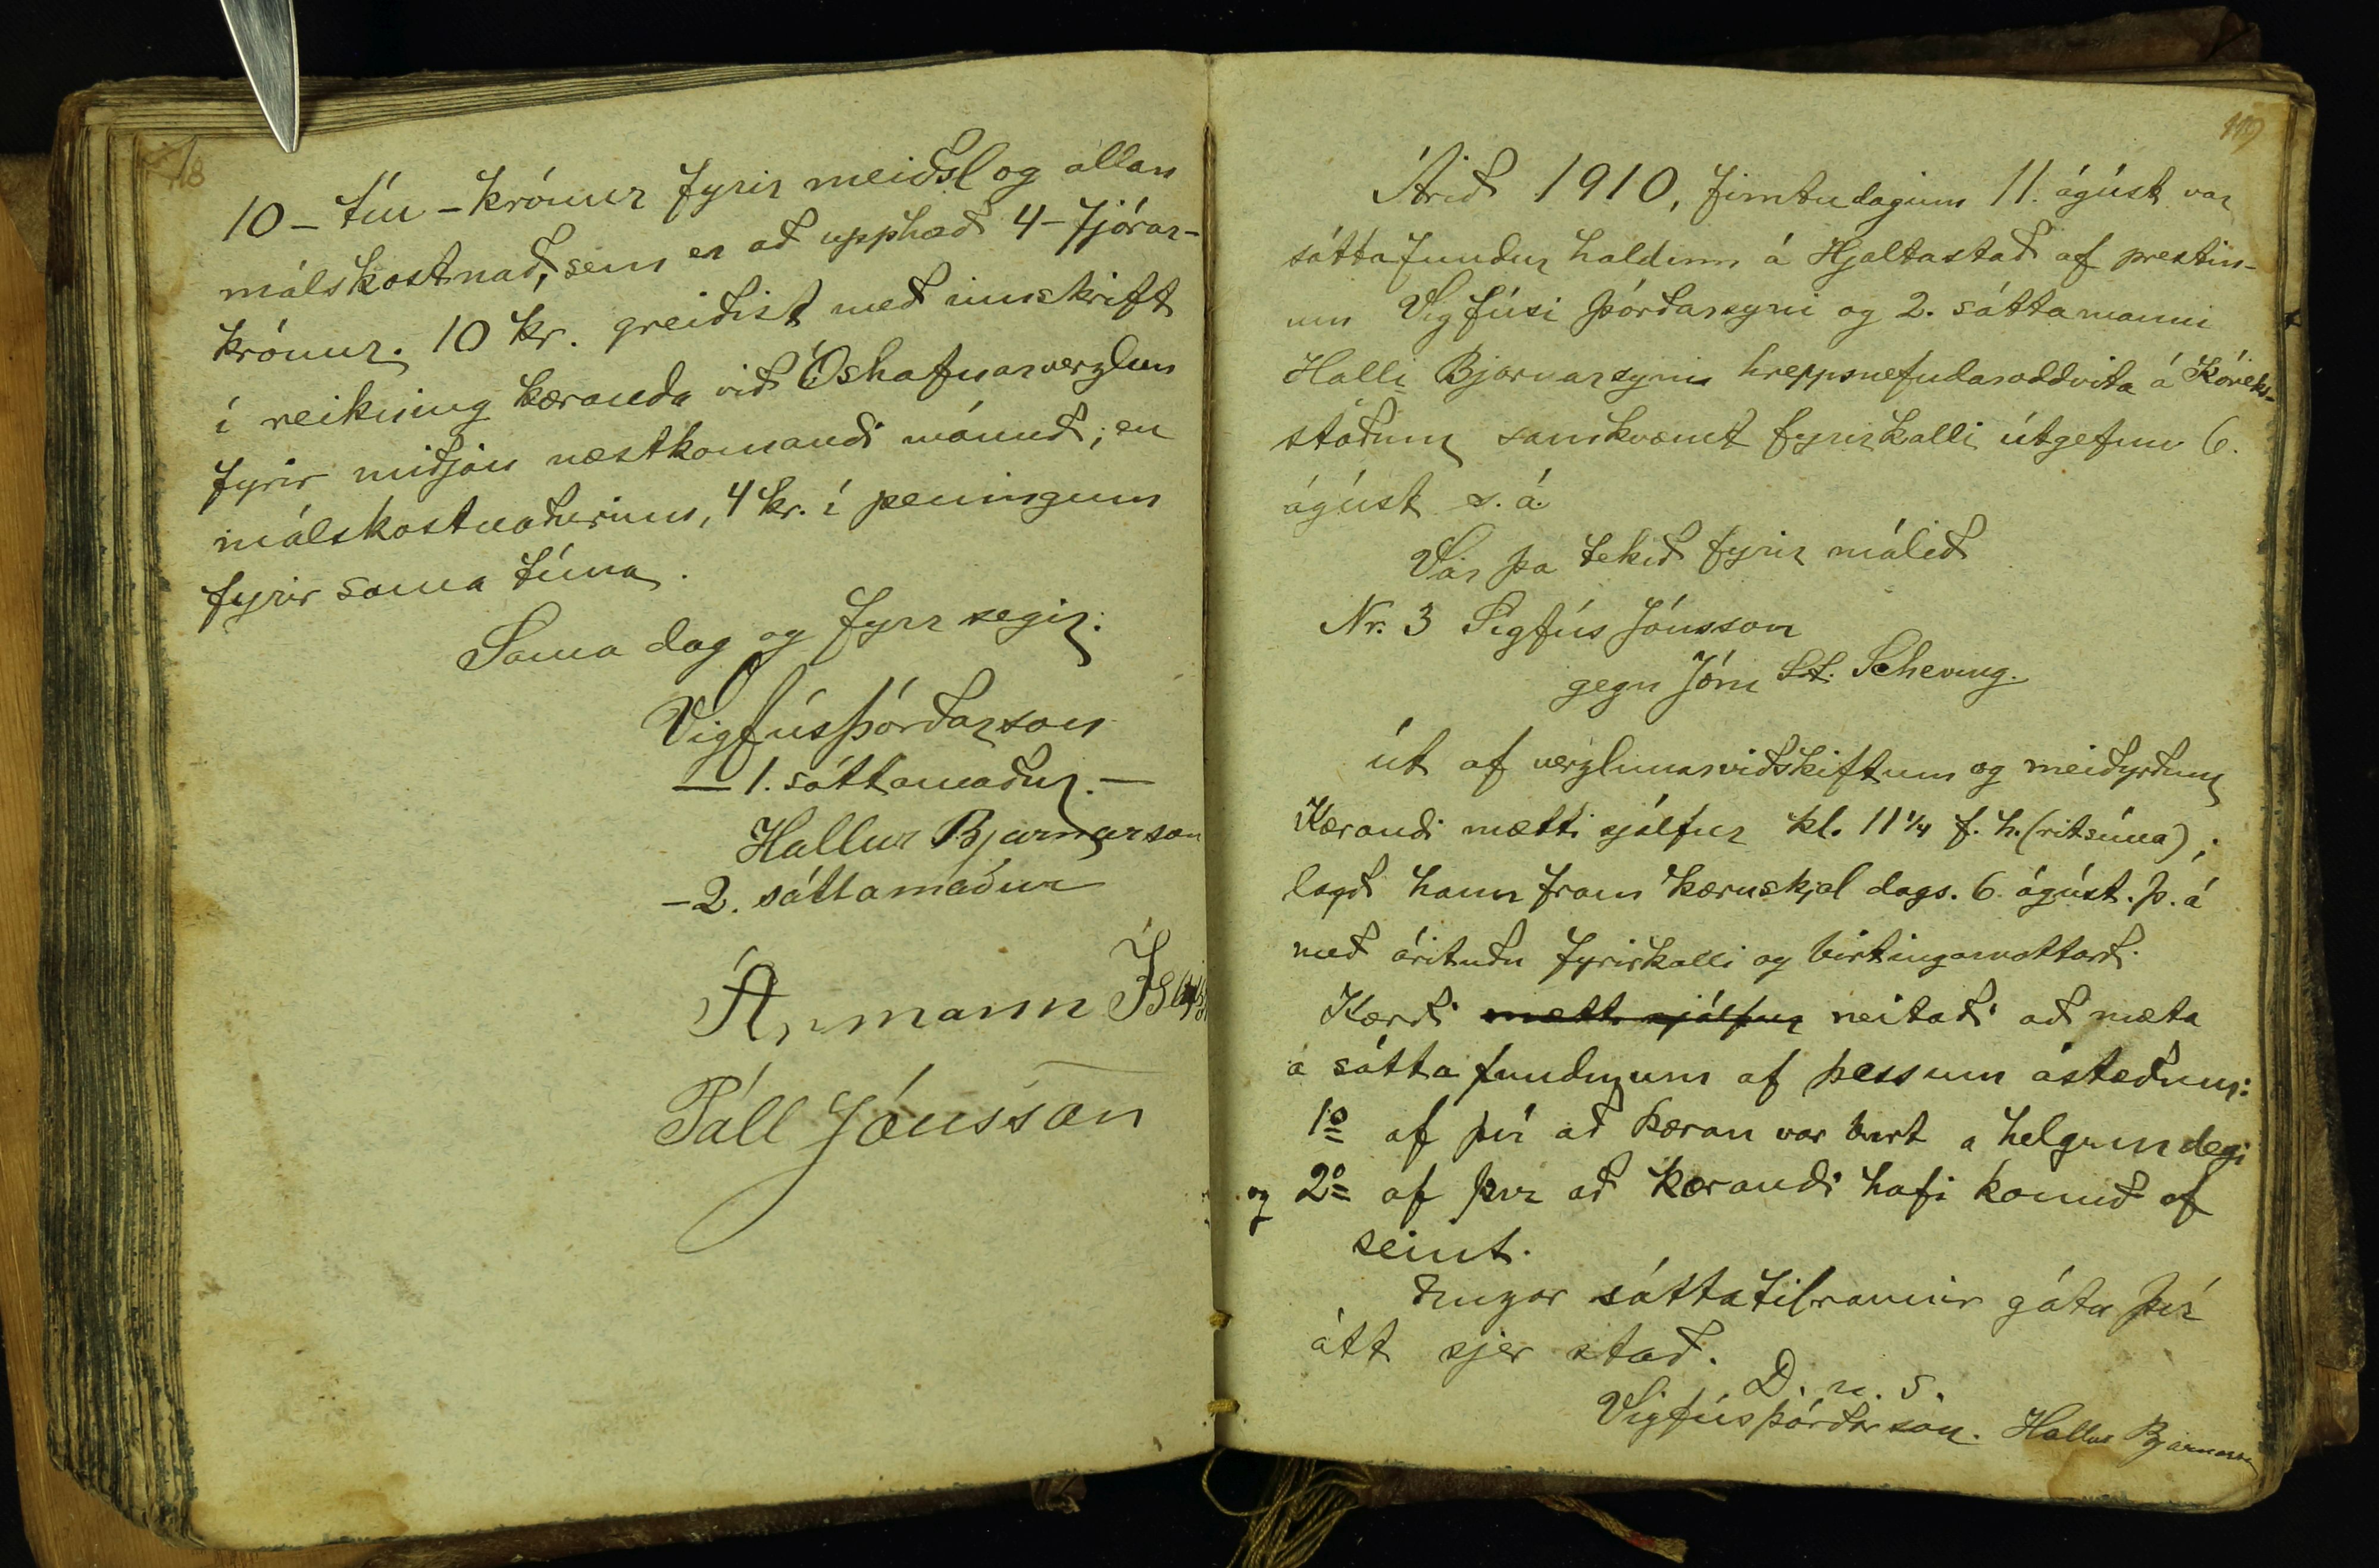 118
10 - tíu - krónur fyrir meiðsl og allan
málskostnað, sem er að upphæð 4 - fjórar -
krónur. 10 kr. greiðist með innskrift
í reikning kæranda við Óshafnarverzlun
fyrir miðjan næstkomandi mánuð; en
málskostnaðurinn, 4 kr. í peningum
fyrir sama tíma.
Sama dag og fyrr segir.
Vigfús Þórðarson
— 1. sáttamaður. —
Hallur Bjarnarson
- 2. sáttamaður
Ármann
Páll Jónsson
119
Árið 1910, fimtudaginn 11. ágúst var
sáttafundur haldinn á Hjaltastað af prestin-
um Vigfúsi Þórðarsyni og 2. sáttamanni
Halli Bjarnarsyni hreppsnefndaroddvita á Kóreks-
stöðum samkvæmt fyrirkalli útgefnu 6.
ágúst s. á.
Var þa tekið fyrir málið
Nr. 3 Sigfús Jónsson
gegn Jóni St. Scheving.
út af verzlunarviðskiftum og meiðyrðum
Kærandi mætti sjálfur kl. 11 1/4 f. h. (ritsíma);
lagði hann fram kæruskjal dags. 6. ágúst. þ. á
með árituðu fyrirkalli og birtingarvottorði.
Kærði mætti sjálfur neitaði að mæta
á sáttafundinum af þessum ástæðum:
1o af því að kæran var birt a helgum degi
og 2o af því að kærandi hafi komið of
seint.
Engar sáttatilraunir gátu því
átt sjer stað.
D. u. s.
Vigfús Þórðarson. Hallur Bjarnarson